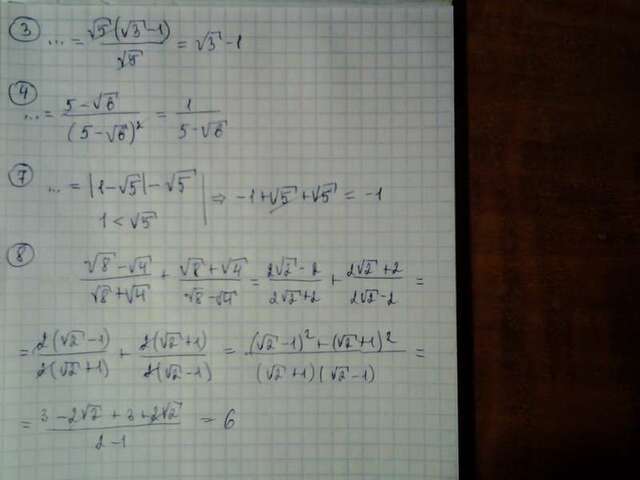 ③ ... = √5(√3-1)/√5 = √3-1
④ ... = 5-√6/(5-√6)² = 1/5-√6
⑦ ... = |1-√5|-√5 | ⇒ -1+√5+√5 = -1
1 < √5
⑧ √8-√4/√8+√4 + √8+√4/√8-√4 = 2√2-2/2√2+2 + 2√2+2/2√2-2 =
= 2(√2-1)/2(√2+1) + 2(√2+1)/2(√2-1) = (√2-1)²+(√2+1)²/(√2+1)(√2-1) =
= 3-2√2+3+2√2/2-1 = 6